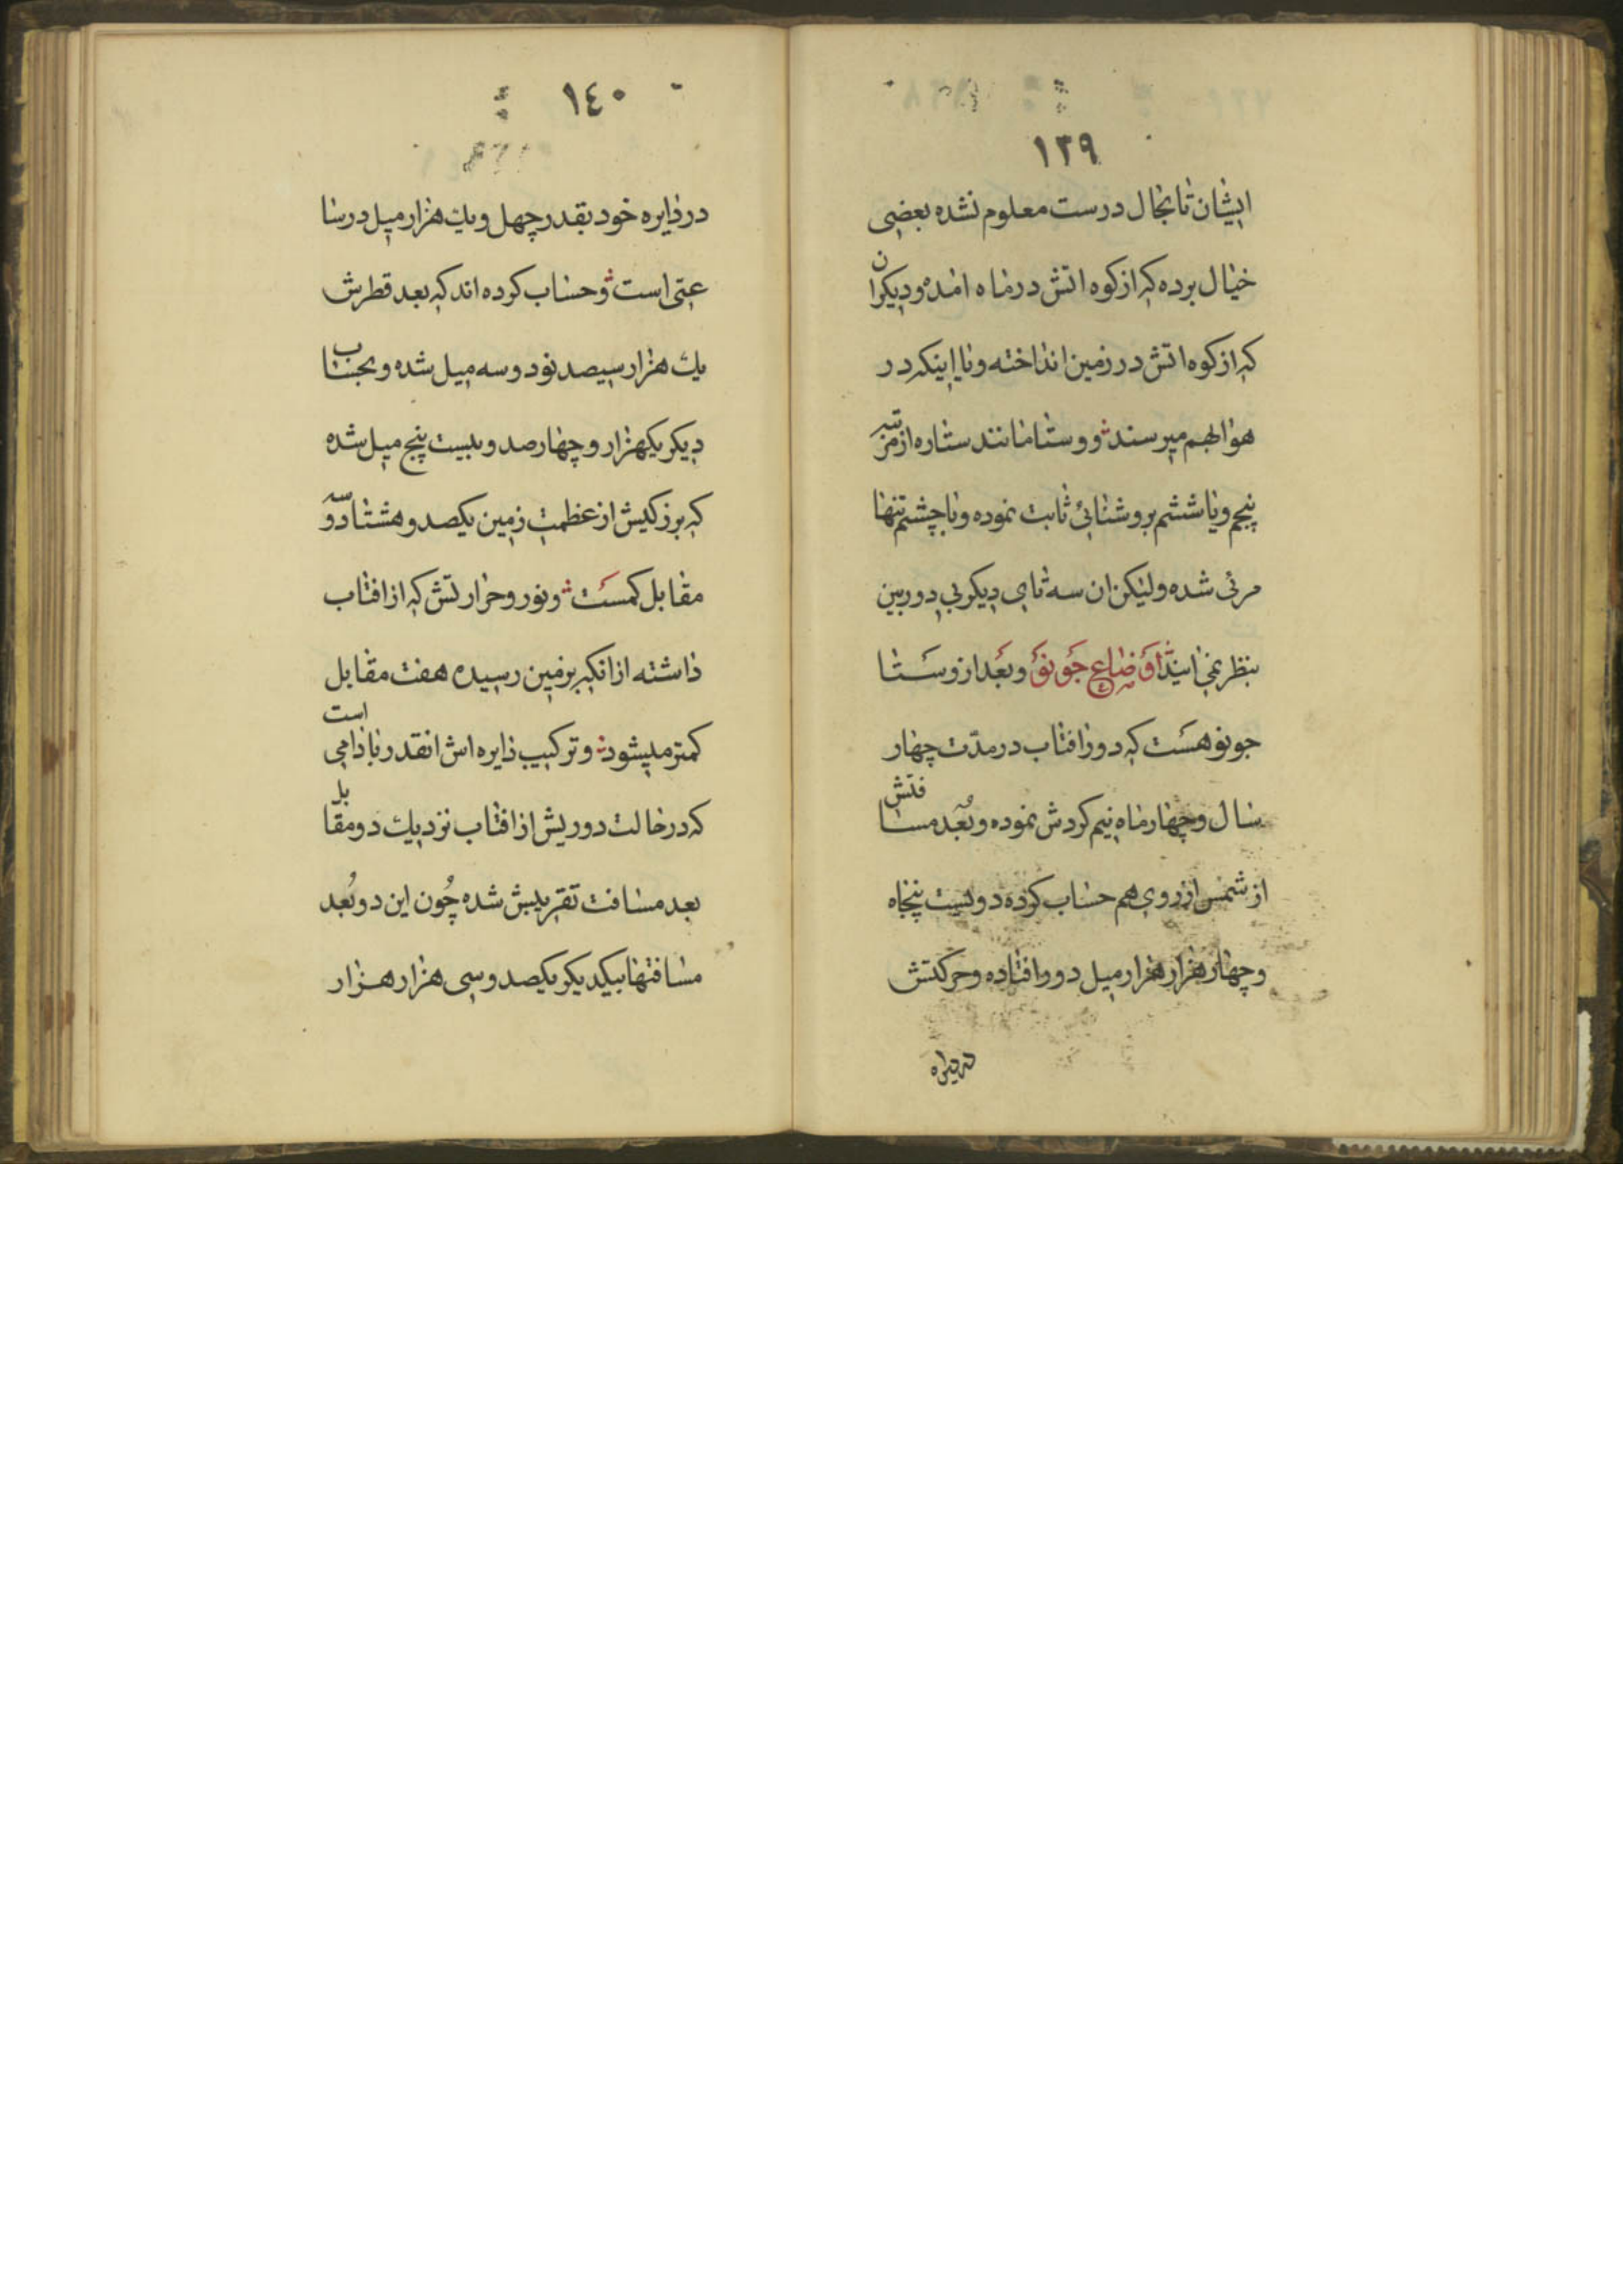 ١٣٩
ایشان تا بحال درست معلوم نشده بعضی
خیال برده که از کوه اتش در ماه امده و دیکران
که از کوه اتش در زمین انداخته و یا اینکه در
هوا بهم میرسند و وستا مانند ستاره از مرتبه
پنجم و یا ششم بروشنائی ثابت نموده و با چشم تنها
مرئی شده ولیکن ان سه تای دیکر بی دوربین
بنظر نمی ایند اوضاع جونو و بعد از وستا
جونو هست که دور افتاب در مدّت چهار
سال و چهار ماه نیم کردش نموده و بُعد مسافتش
از شمس از روی هم حساب کرده دویست پنجاه
و چهار هزار هزار میل دور افتاده و حرکتش
در دایره
١٤٠
در دایره خود بقدر چهل و یك هزار میل در سا
عتی است و حساب کرده اند که بعد قطرش
یك هزار سیصد نود و سه میل شده و بحساب
دیکر یکهزار و چهار صد و بیست پنج میل شده
که بزرکیش از عظمت زمین یکصد و هشتاد و سه
مقابل کمست و نور و حرارتش که از افتاب
داشته از انکه بزمین رسیده هفت مقابل
کمتر میشود و ترکیب دایره اش انقدر بادامی است
که در حالت دوریش از افتاب نزدیك دو مقابل
بعد مسافت تقریبش شده چُون این دو بُعد
مسافتها بیکدیکر یکصد و سی هزار هزار